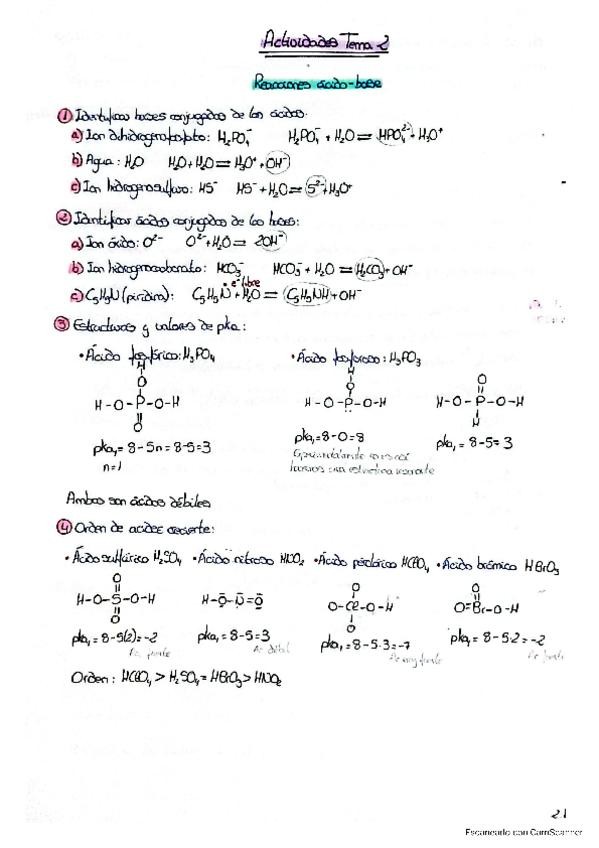 Actividades Tema 2
Reacciones ácido-base
① Identificar bases conjugadas de los ácidos:
a) Ion dihidrogenofosfato: H₂PO₄⁻ H₂PO₄⁻ + H₂O = HPO₄²⁻ + H₃O⁺
b) Agua: H₂O H₂O + H₂O = H₃O⁺ + OH⁻
c) Ion hidrogenosulfuro: HS⁻ HS⁻ + H₂O = S²⁻ + H₃O⁺
② Identificar ácidos conjugados de las bases:
a) Ion óxido: O²⁻ O²⁻ + H₂O = 2OH⁻
b) Ion hidrogenocarbonato: HCO₃⁻ HCO₃⁻ + H₂O = H₂CO₃ + OH⁻
• e⁻ libre
c) C₅H₅N (piridina): C₅H₅N + H₂O = C₅H₅NH + OH⁻
③ Estructuras y valores de pka:
• Ácido fosfórico: H₃PO₄ • Ácido fosforoso: H₃PO₃
H H
O O O
H-O-P-O-H H-O-P-O-H H-O-P-O-H
O H
pka₁ = 8-5n = 8-5 = 3 pka₁ = 8-0 = 8 pka₁ = 8-5 = 3
n=1
Ambos son ácidos débiles
④ Orden de acidez creciente:
• Ácido sulfúrico H₂SO₄ • Ácido nitroso HNO₂ • Ácido perclórico HClO₄ • Ácido brómico HBrO₃
O O O
H-O-S-O-H H-O-N=O O-Cl-O-H O=Br-O-H
O O
pka₁ = 8-5(2) = -2 pka₁ = 8-5 = 3 pka₁ = 8-5·3 = -7 pka₁ = 8-5·2 = -2
Ac. fuerte Ac débil Ac muy fuerte Ac fuerte
Orden: HClO₄ > H₂SO₄ = HBrO₃ > HNO₂
2.1
Escaneado con CamScanner